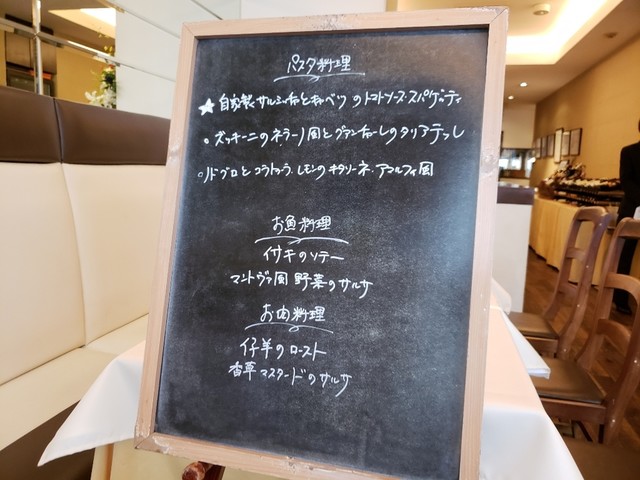 パスタ料理
★ 自家製サルシッチャとキャベツのトマトソース・スパゲッティ
○ ズッキーニのネラーノ風とグアンチャーレのタリアテッレ
○ノドグロとコラトゥーラ、レモンのキタリーネ・アマルフィ風
お魚料理
イサキのソテー
マントヴァ風 野菜のサルサ
お肉料理
仔羊のロースト
香草マスタードのサルサ